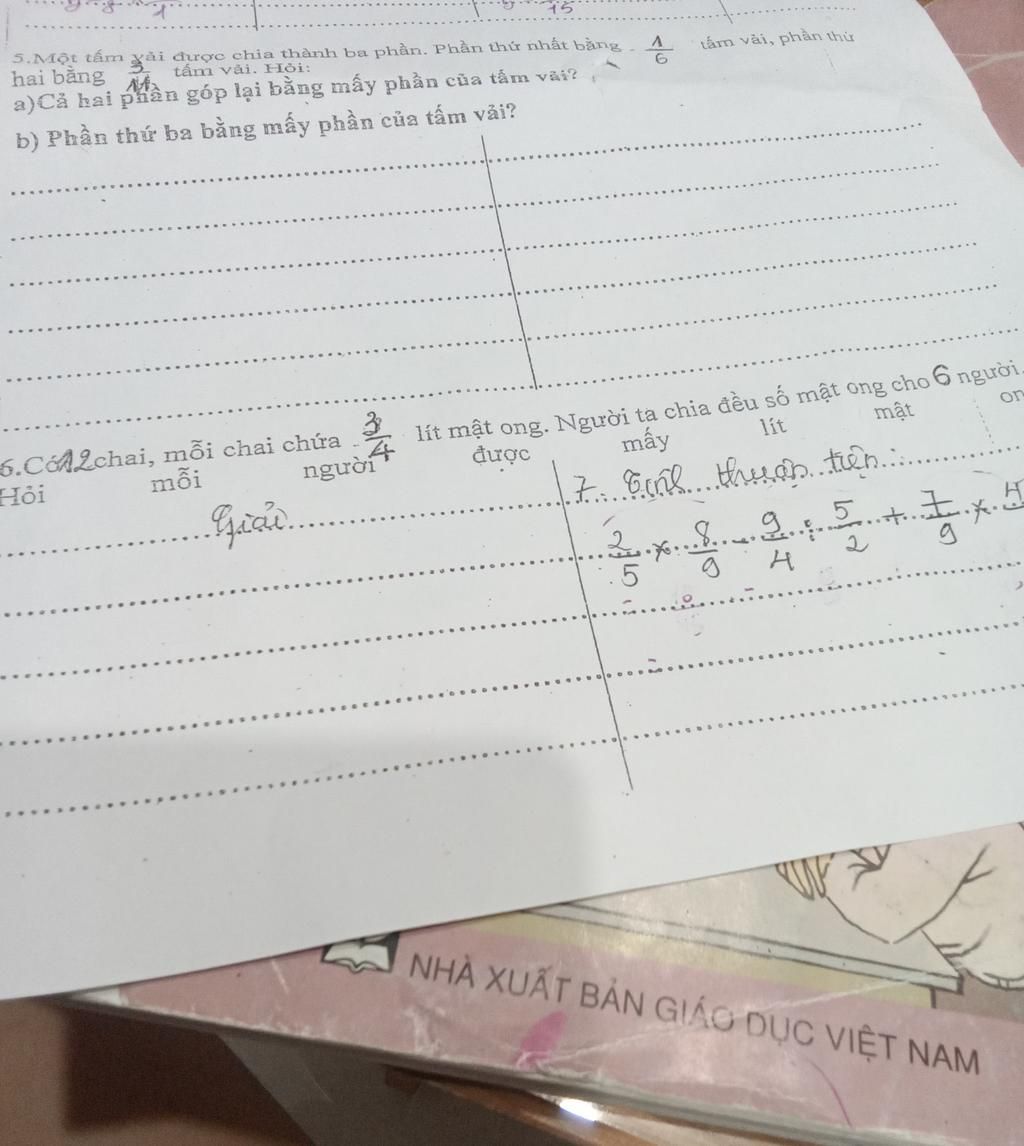 5.Một tấm vải được chia thành ba phần. Phần thứ nhất bằng 1/6 tấm vải, phần thứ
hai bằng tấm vải. Hỏi:
a)Cả hai phần góp lại bằng mấy phần của tấm vải?
b) Phần thứ ba bằng mấy phần của tấm vải?
6.Có 12 chai, mỗi chai chứa 3/4 lít mật ong. Người ta chia đều số mật ong cho 6 người.
Hỏi mỗi người được mấy lít mật on
Giải
7. thuận tiện:
2/5 × 8/9 - 9/4 : 5/2 + 7/9 ×
NHÀ XUẤT BẢN GIÁO DỤC VIỆT NAM